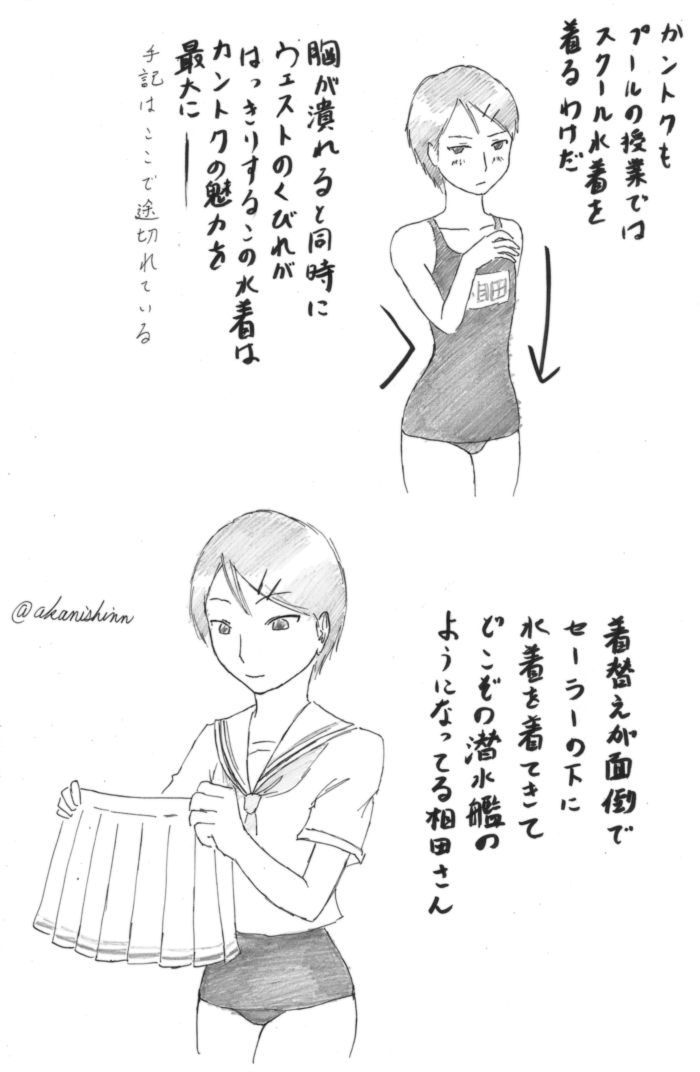 カントクも
プールの授業では
スクール水着を
着るわけだ
胸が潰れると同時に
ウェストのくびれが
はっきりするこの水着は
カントクの魅力を
最大に──
手記はここで途切れている
相田
@akanishinn
着替えが面倒で
セーラーの下に
水着を着てきて
どこぞの潜水艦の
ようになってる相田さん